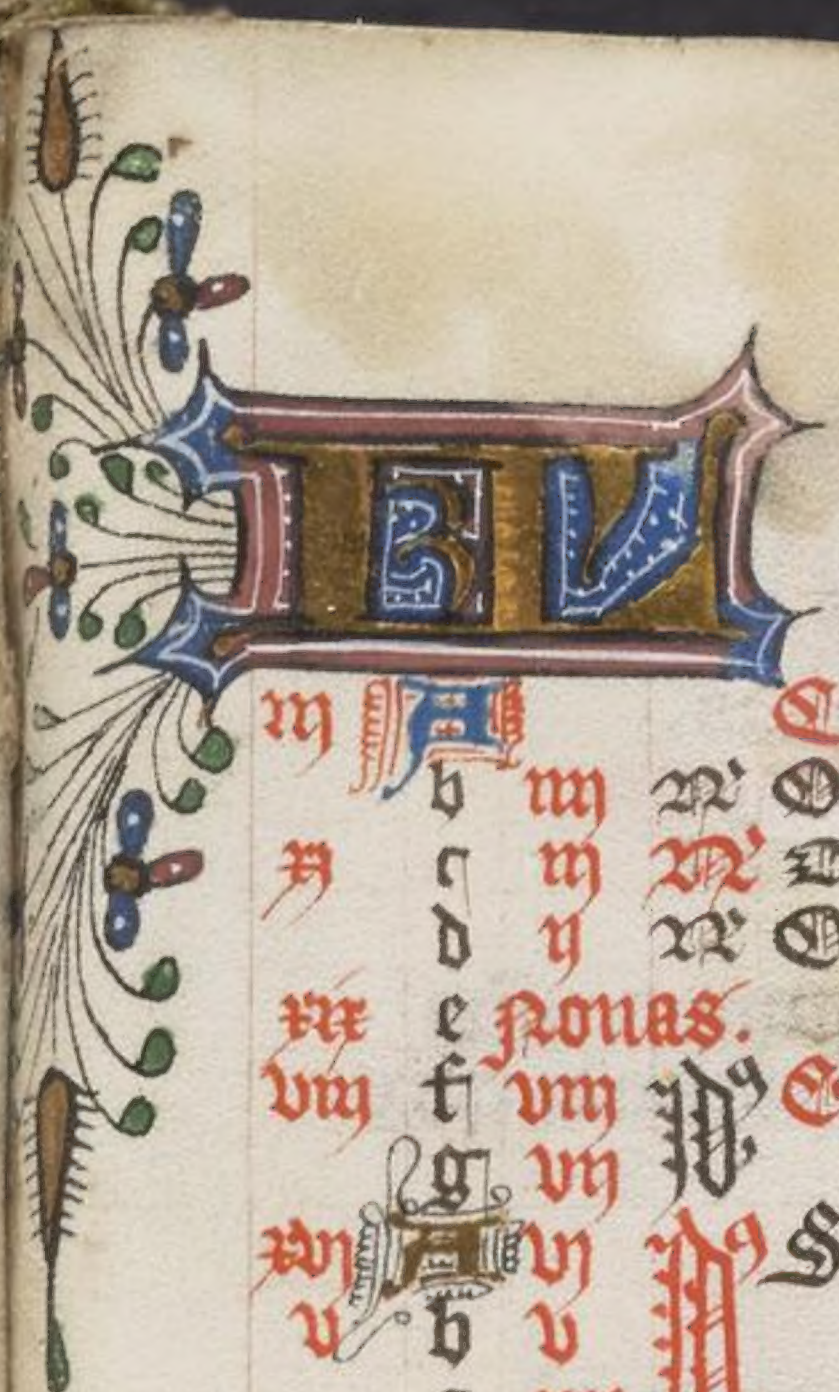 KL
iij A
b iiij N'
xj c iij N'
d ij N'
xix e Nonas.
viij f viij Id9
g vij
xvj A vj Id9
v b v